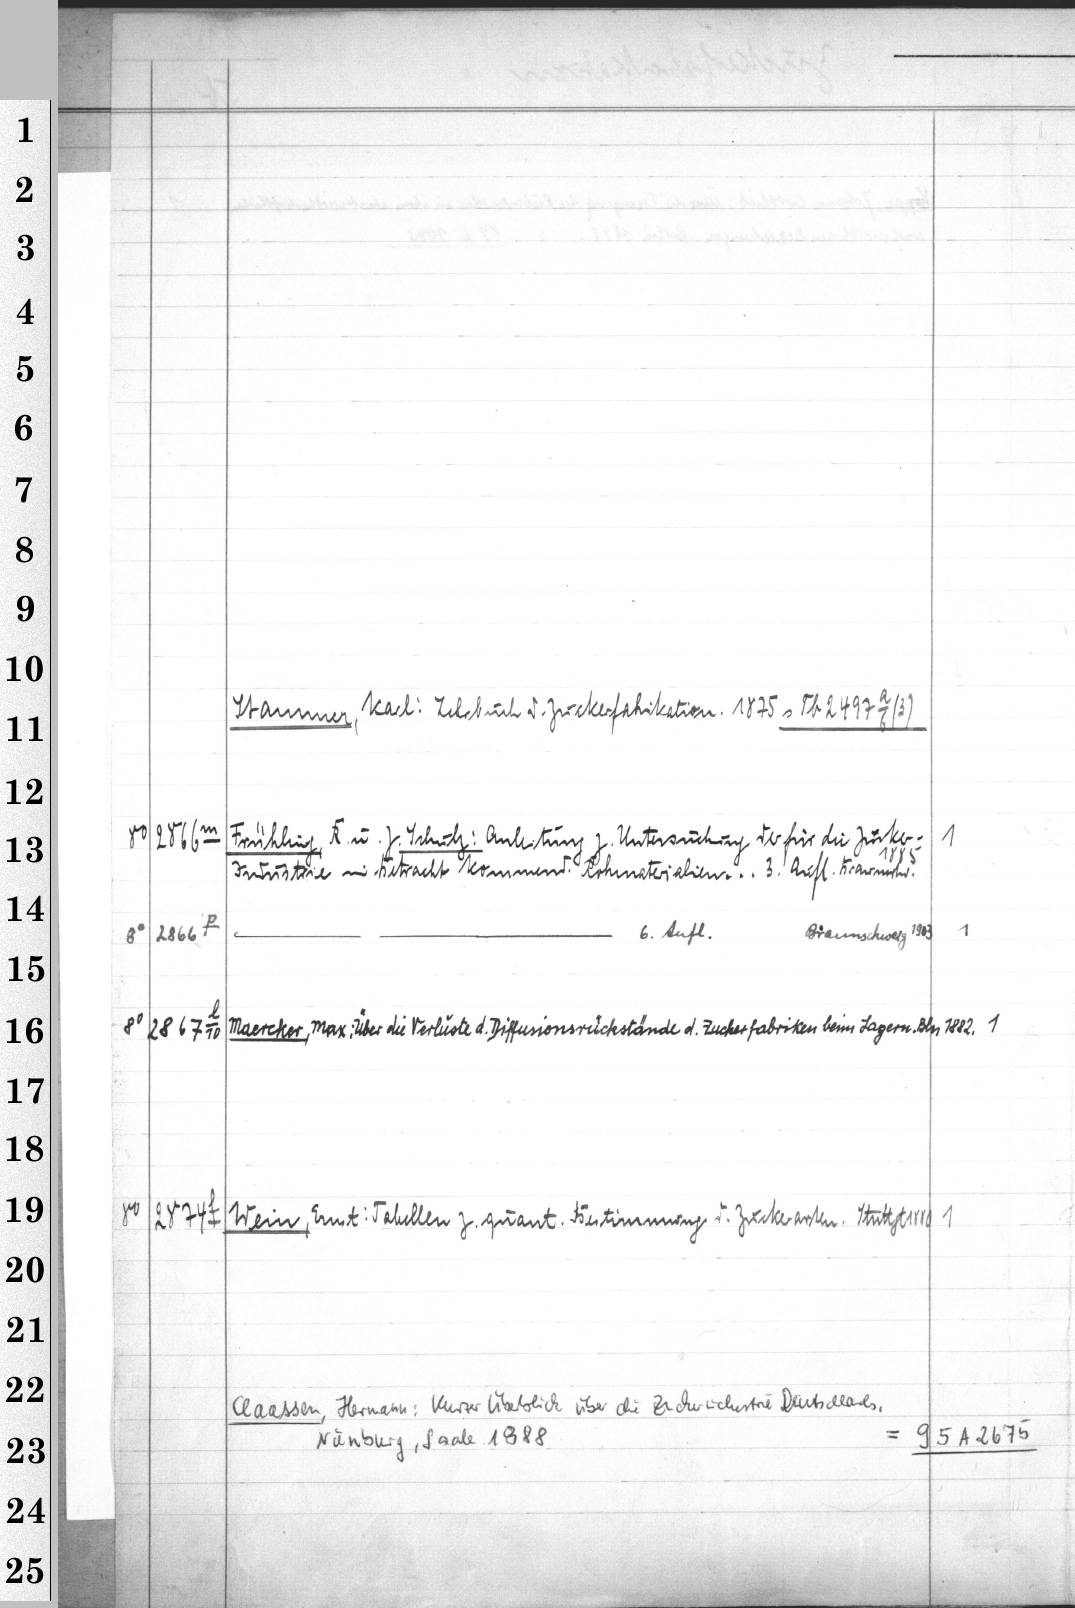 1
2
3
4
5
6
7
8
9
10
11
Stammer, Karl: Lehrbuch d. Zuckerfabrikation. 1875 s Tb 2497 a/6 (3)
12
13
8° 2866 m Frühling, R. u. J. Schulz: Anleitung z. Untersuchung der für die Zucker- 1
Industrie in Betracht kommend. Rohmaterialien... 3. Aufl. Braunschw. 1885
14
8° 2866 p 6. Aufl. Braunschweig 1903 1
15
16
8° 2867 l/10 Maercker, Max: Über die Verluste d. Diffusionsrückstände d. Zuckerfabriken beim Lagern. Bln 1882. 1
17
18
19
8° 2874 Wein, Ernst: Tabellen z. quant. Bestimmung d. Zuckerarten. Stuttgt 1
20
21
22
Claassen, Hermann: Kurzer Überblick über die Zuckerindustrie Deutschlands.
23
Nienburg, Saale = 95 A 2675
24
25